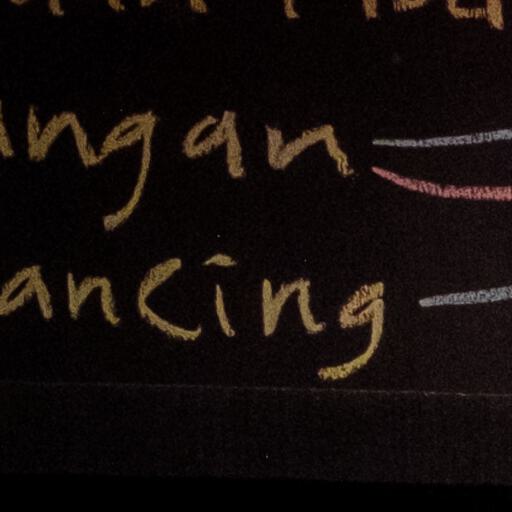 ngan
ancing